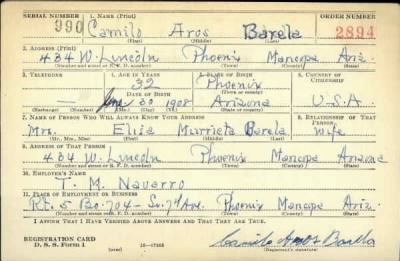 SERIAL NUMBER 1. NAME (Print) ORDER NUMBER
990 Camilo Aros Barela 2894
(First) (Middle) (Last)
2. ADDRESS (Print)
484 W. Lincoln Phoenix Maricopa Ariz.
(Number and street or R. F. D. number) (Town) (County) (State)
3. TELEPHONE 4. AGE IN YEARS 5. PLACE OF BIRTH 6. COUNTRY OF CITIZENSHIP
32 Phoenix
DATE OF BIRTH (Town or county)
30 1908 Arizona U.S.A.
(Exchange) (Number) (Mo.) (Day) (Yr.) (State or country)
7. NAME OF PERSON WHO WILL ALWAYS KNOW YOUR ADDRESS 8. RELATIONSHIP OF THAT PERSON
Mrs. Murrieta Barela Wife
(Mr., Mrs., Miss) (First) (Middle) (Last)
9. ADDRESS OF THAT PERSON
484 W. Lincoln Phoenix Maricopa Arizona
(Number and street or R. F. D. number) (Town) (County) (State)
10. EMPLOYER'S NAME
T. M. Navarro
11. PLACE OF EMPLOYMENT OR BUSINESS
Rt. 5 Bo. 704 - So. 7th Ave. Phoenix Maricopa Ariz.
(Number and street or R. F. D. number) (Town) (County) (State)
I AFFIRM THAT I HAVE VERIFIED ABOVE ANSWERS AND THAT THEY ARE TRUE.
REGISTRATION CARD
D. S. S. Form 1 Camilo Aros Barela
(Registrant's signature)